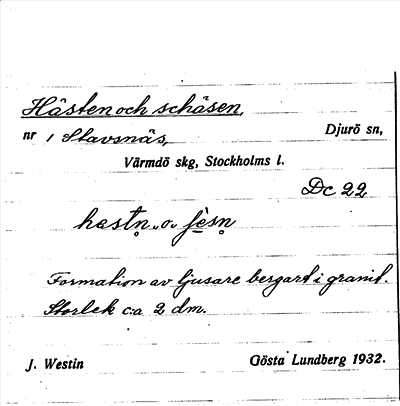 Hästen och schäsen,
nr 1 Stavsnäs, Djurö sn,
Värmdö skg, Stockholms l.
Dc 22
hestn̥ o. ʃèsn̥
Formation av ljusare bergart i granit.
Storlek c:a 2 dm.
J. Westin Gösta Lundberg 1932.